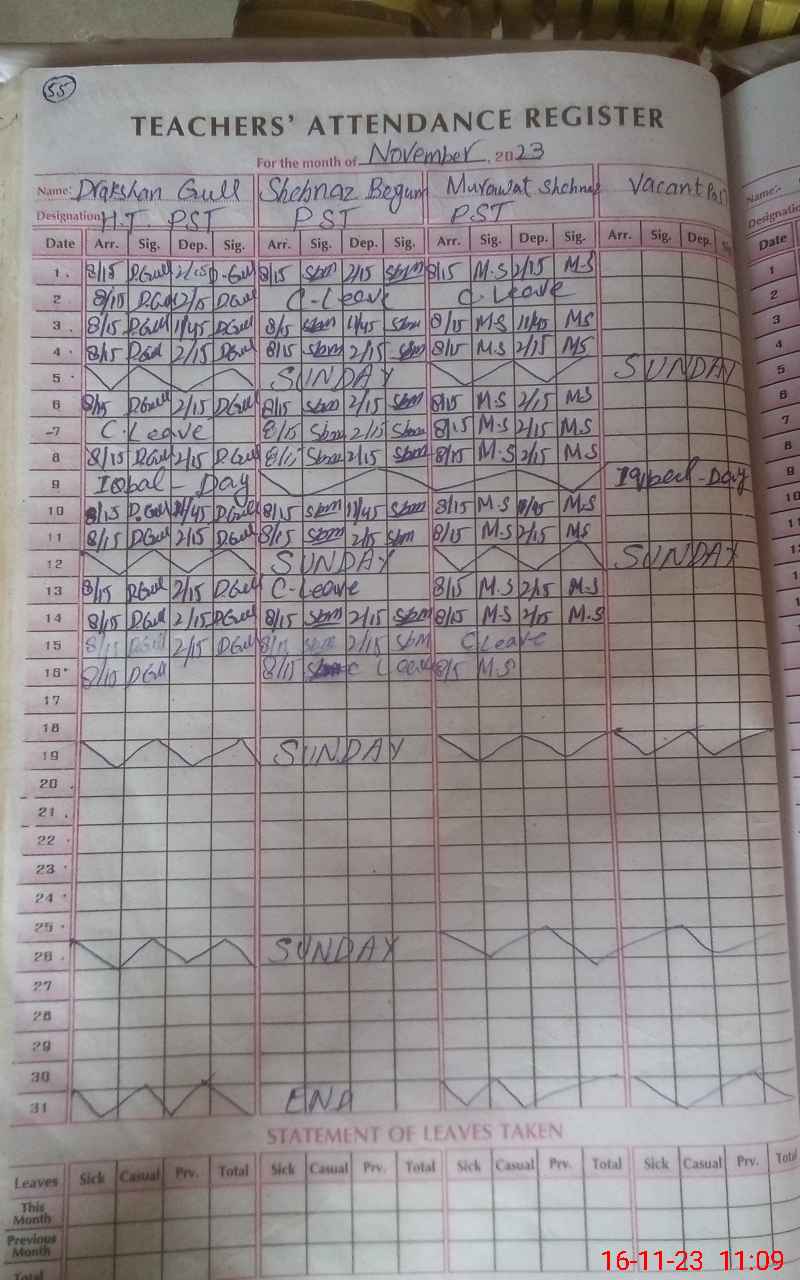 55
TEACHERS' ATTENDANCE REGISTER
For the month of November, 2023
Name: Drakshan Gull Shehnaz Begum Murawat Shehnaz Vacant Post Name:-
Designation H.T PST PST PST Designatio
Date Arr. Sig. Dep. Sig. Arr. Sig. Dep. Sig. Arr. Sig. Dep. Sig. Arr. Sig. Dep. Date
1 8/15 D.Gull 2/15 D.Gull 8/15 Sbm 2/15 Sbm 8/15 M.S 2/15 M.S 1
2 8/15 D.Gull 2/15 DGull C-Leave C Leave 2
3 8/15 DGull 11/45 DGull 8/15 Sbm 11/45 Sbm 8/15 M.S 11/45 MS 3
4 8/15 DGull 2/15 DGull 8/15 Sbm 2/15 Sbm 8/15 M.S 2/15 MS 4
5 SUNDAY SUNDAY 5
6 8/15 DGull 2/15 DGull 8/15 Sbm 2/15 Sbm 8/15 M.S 2/15 M.S 6
7 C.Leave 8/15 Sbm 2/15 Sbm 8/15 M.S 2/15 M.S 7
8 8/15 DGull 2/15 DGull 8/15 Sbm 2/15 Sbm 8/15 M.S 2/15 M.S 8
9 Iqbal-Day Iqbal-Day 9
10 8/15 D.Gull 11/45 DGull 8/15 Sbm 11/45 Sbm 8/15 M.S 11/45 M.S 10
11 8/15 DGull 2/15 DGull 8/15 Sbm 2/15 Sbm 8/15 M.S 2/15 MS 11
12 SUNDAY SUNDAY
13 8/15 DGull 2/15 DGull C-Leave 8/15 M.S 2/15 M.S
14 8/15 DGull 2/15 DGull 8/15 Sbm 2/15 Sbm 8/15 M.S 2/15 M.S
15 8/15 DGull 2/15 DGull 8/15 Sbm 2/15 SbM C Leave
16 8/15 DGull 8/15 C Leave 8/15 M.S
17
18
19 SUNDAY
20
21
22
23
24
25
26 SUNDAY
27
28
29
30
31 END
STATEMENT OF LEAVES TAKEN
Leaves Sick Casual Prv. Total Sick Casual Prv. Total Sick Casual Prv. Total Sick Casual Prv. Total
This Month
Previous Month
Total
16-11-23 11:09